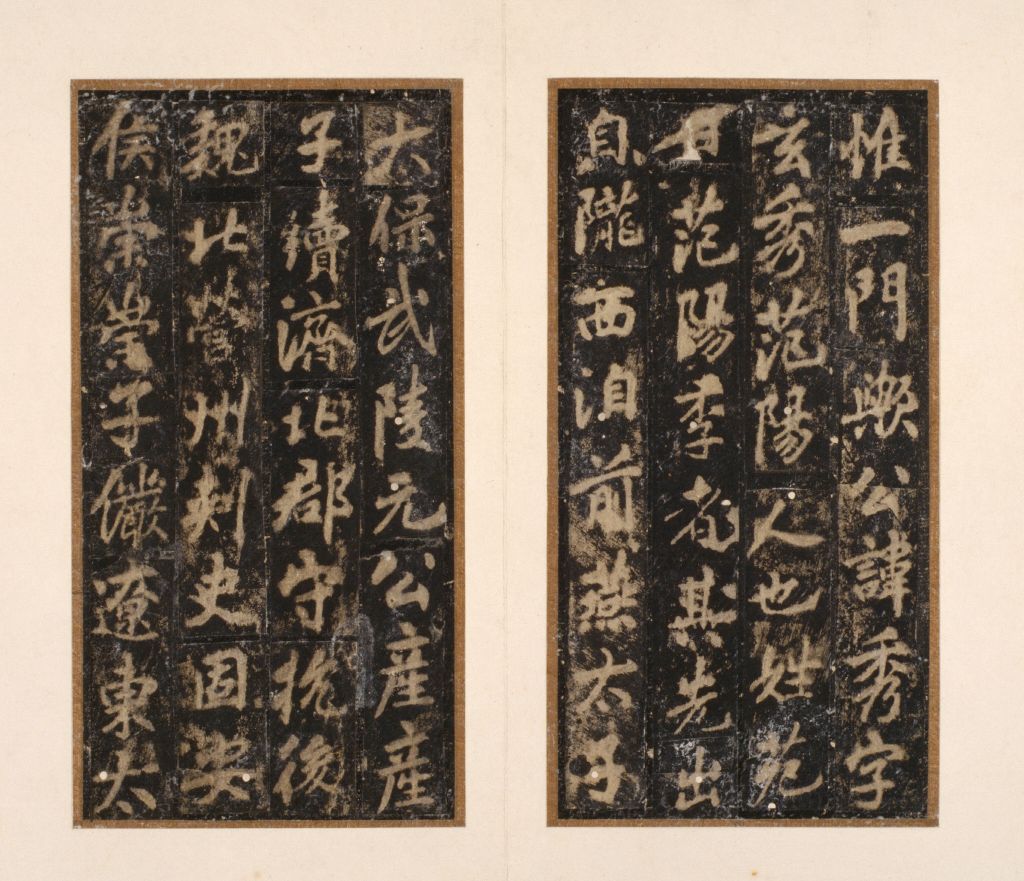 惟一門歟公諱秀字
玄秀范陽人也姓苑
范陽季者其先出
自隴西洎前燕太子
太保武陵元公産産
子續濟北郡守抗後
魏北營州刺史固安
侯崇崇子儼遼東太